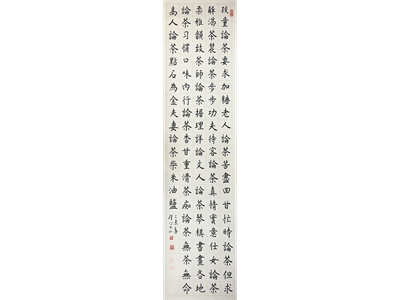 孩童論茶要求加糖老人論茶苦盡回甘忙時論茶但求
解渴茶農論茶步步功夫待客論茶真情實意仕女論茶
柔雅韻茶師論茶理詳論文人論茶琴棋書畫各地
論茶習慣口味內行論茶香甘重滑茶痴論茶無茶無命
高人論茶點石為金夫妻論茶柴米油鹽